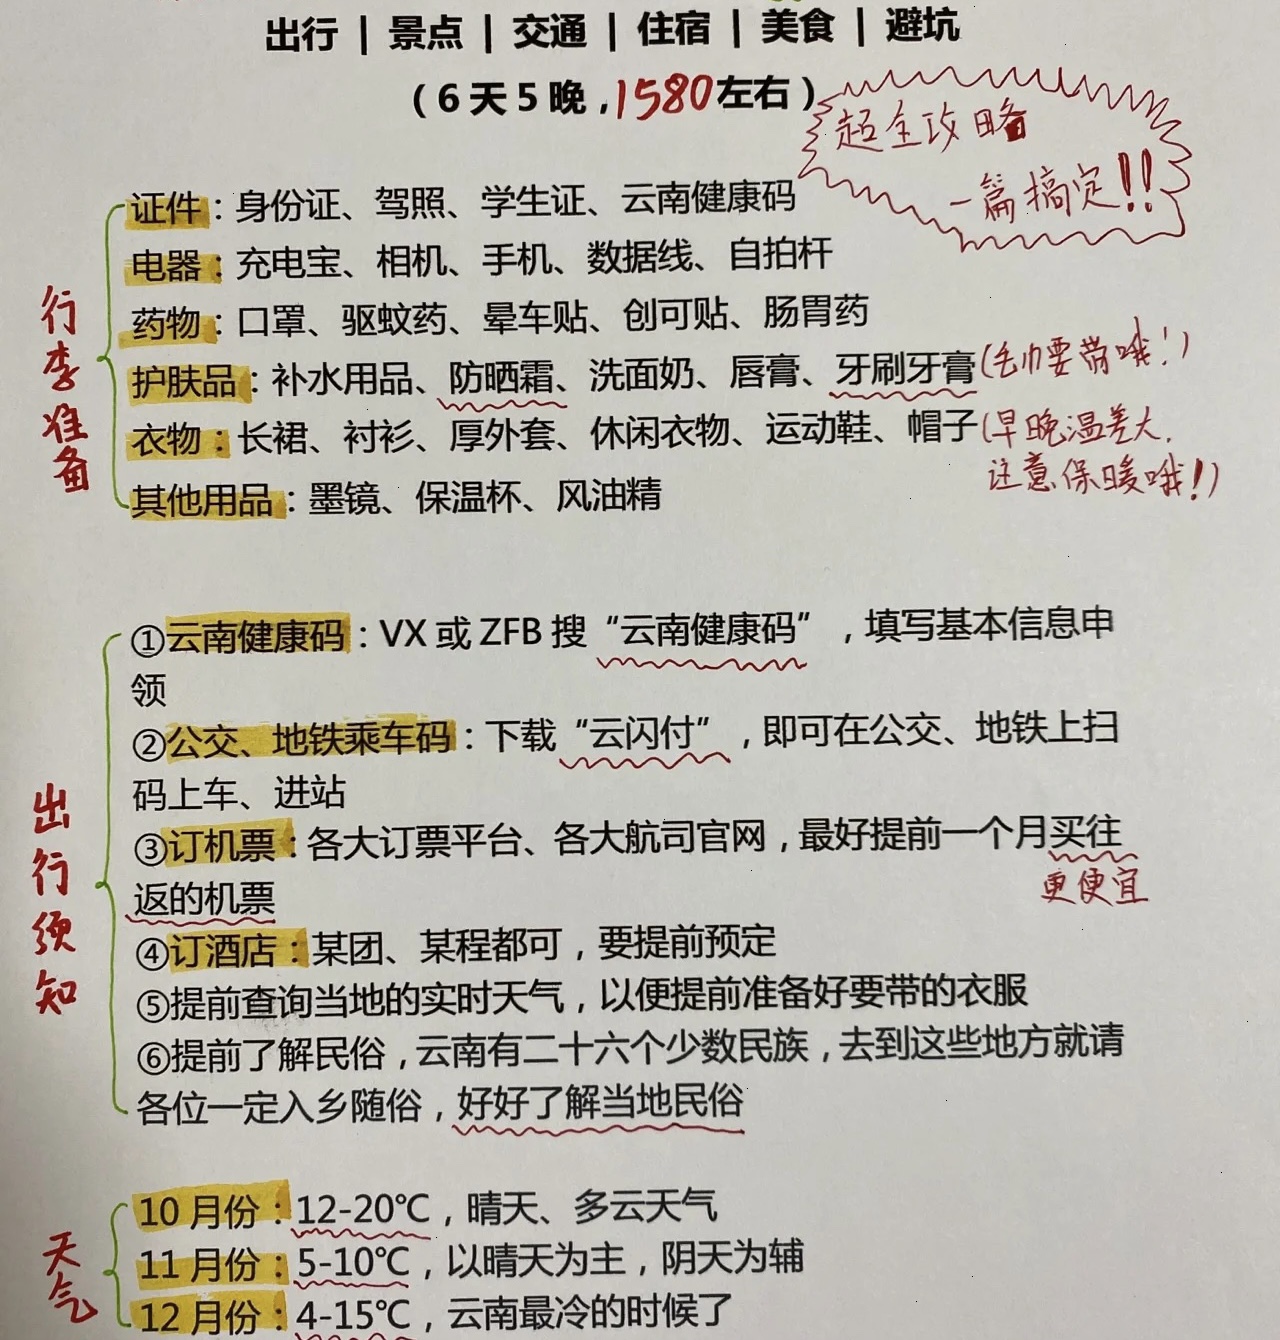 出行 | 景点 | 交通 | 住宿 | 美食 | 避坑
（6天5晚，1580左右）
超全攻略
一篇搞定!!
行李准备
证件：身份证、驾照、学生证、云南健康码
电器：充电宝、相机、手机、数据线、自拍杆
药物：口罩、驱蚊药、晕车贴、创可贴、肠胃药
护肤品：补水用品、防晒霜、洗面奶、唇膏、牙刷牙膏(毛巾要带哦!)
衣物：长裙、衬衫、厚外套、休闲衣物、运动鞋、帽子(早晚温差大.
注意保暖哦!)
其他用品：墨镜、保温杯、风油精
出行须知
①云南健康码：VX或ZFB搜“云南健康码”，填写基本信息申
领
②公交、地铁乘车码：下载“云闪付”，即可在公交、地铁上扫
码上车、进站
③订机票：各大订票平台、各大航司官网，最好提前一个月买往
返的机票
更便宜
④订酒店：某团、某程都可，要提前预定
⑤提前查询当地的实时天气，以便提前准备好要带的衣服
⑥提前了解民俗，云南有二十六个少数民族，去到这些地方就请
各位一定入乡随俗，好好了解当地民俗
天气
10月份：12-20℃，晴天、多云天气
11月份：5-10℃，以晴天为主，阴天为辅
12月份：4-15℃，云南最冷的时候了